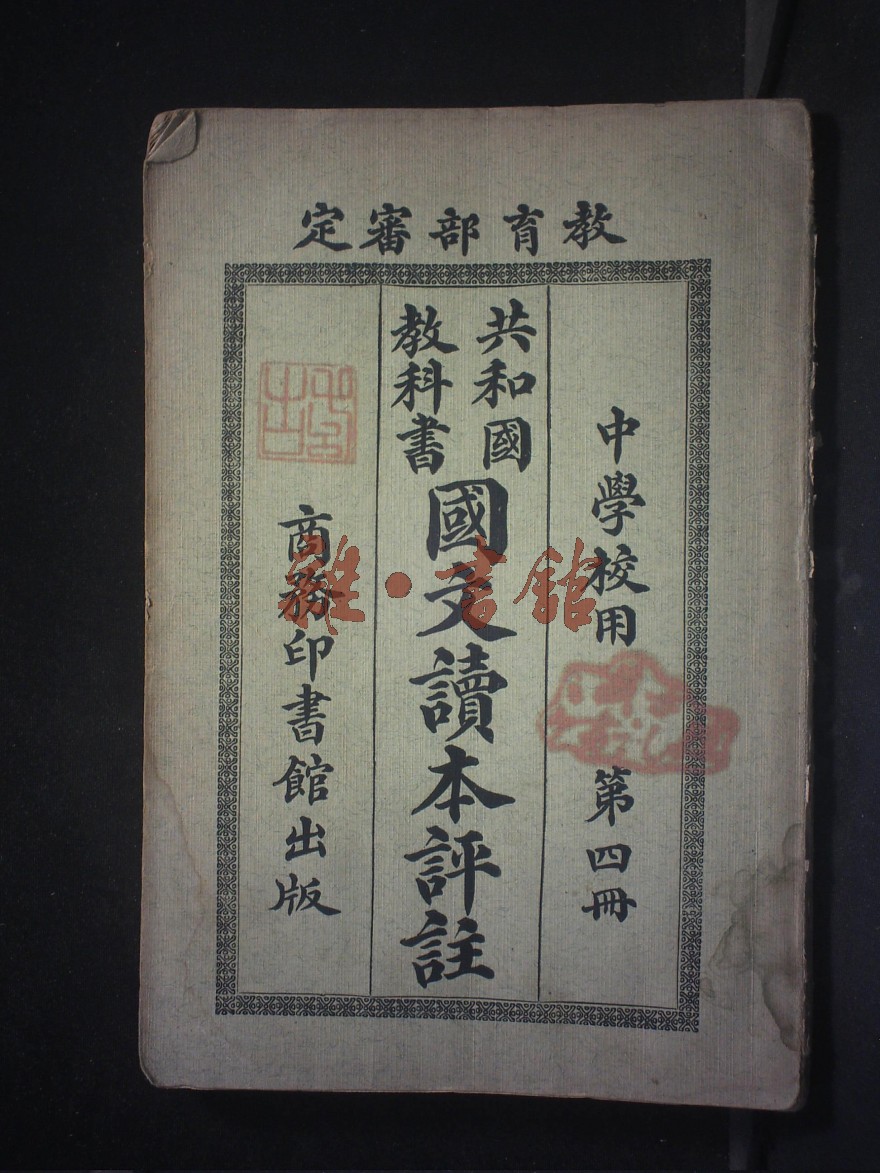 教育部審定
中學校用 第四冊
共和國
教科書
國文讀本評註
商務印書館出版
雜·書館